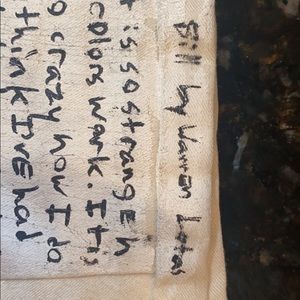 Bill by Warren Lotas
t is so strange h
work. It is
crazy how I do
think IVE had